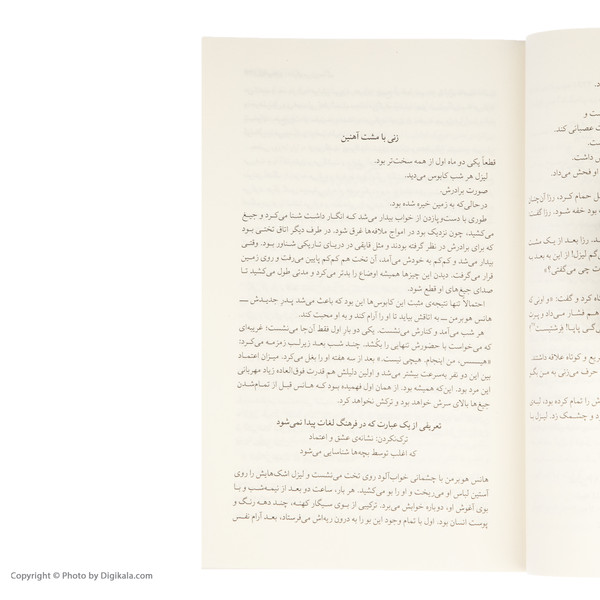 زنی با مشت آهنین
قطعاً یکی دو ماه اول از همه سخت‌تر بود.
لیزل هر شب کابوس می‌دید.
صورت برادرش.
درحالی‌که به زمین خیره شده بود.
طوری با دست‌وپازدن از خواب بیدار می‌شد که انگار داشت شنا می‌کرد و جیغ
می‌کشید، چون نزدیک بود در امواج ملافه‌ها غرق شود. در طرف دیگر اتاق تختی بود
که برای برادرش در نظر گرفته بودند و مثل قایقی در دریای تاریکی شناور بود. وقتی
بیدار می‌شد و کم‌کم به خودش می‌آمد، آن تخت هم کم‌کم پایین می‌رفت و روی زمین
قرار می‌گرفت. دیدن این چیزها همیشه اوضاع را بدتر می‌کرد و مدتی طول می‌کشید تا
صدای جیغ‌های او قطع شود.
احتمالاً تنها نتیجه‌ی مثبت این کابوس‌ها این بود که باعث می‌شد پدرِ جدیدش ــ
هانس هوبرمن ــ به اتاقش بیاید تا او را آرام کند و به او محبت کند.
هر شب می‌آمد و کنارش می‌نشست. یکی دو بار اول فقط آن‌جا می‌نشست؛ غریبه‌ای
که می‌خواست با حضورش تنهایی را بکُشد. چند شب بعد زیرلب زمزمه می‌کرد:
«هیــس، من اینجام. هیچی نیست.» بعد از سه هفته او را بغل می‌کرد. میزان اعتماد
بین این دو نفر به‌سرعت بیشتر می‌شد و اولین دلیلش هم قدرتِ فوق‌العاده زیاد مهربانی
این مرد بود. این‌که همیشه بود. از همان اول فهمیده بود کـه هانس قبل از تمام‌شدن
جیغ‌ها بالای سرش خواهد بود و ترکش نخواهد کرد.
تعریفی از یک عبارت که در فرهنگ لغات پیدا نمی‌شود
ترک‌نکردن: نشانه‌ی عشق و اعتماد
که اغلب توسط بچه‌ها شناسایی می‌شود
هانس هوبرمن با چشمانی خواب‌آلود روی تخت می‌نشست و لیزل اشک‌هایش را روی
آستین لباس او می‌ریخت و او را بو می‌کشید. هر بار، ساعت دو بعد از نیمه‌شب و با
بوی آغوش او، دوباره خوابش می‌برد. ترکیبی از بوی سیگار کهنه، چند دهه رنگ و
پوست انسان بود. اول با تمام وجود این بو را به درون ریه‌اش می‌فرستاد، بعد آرام نفس
عصبانی کند.
داشت.
او فحش می‌داد.
حمام کرد، رزا آن‌چنان
بود خفه شود. رزا گفت
رزا بعد از یک مشت
چی می‌گفتی؟»
کرد و گفت:
هم فشار می‌داد و
و کوتاه علاقه داشتند
حرف می‌زنی به من بگو
را تمام کرده بود،
و چشمک زد. لیزل با
Copyright © Photo by Digikala.com